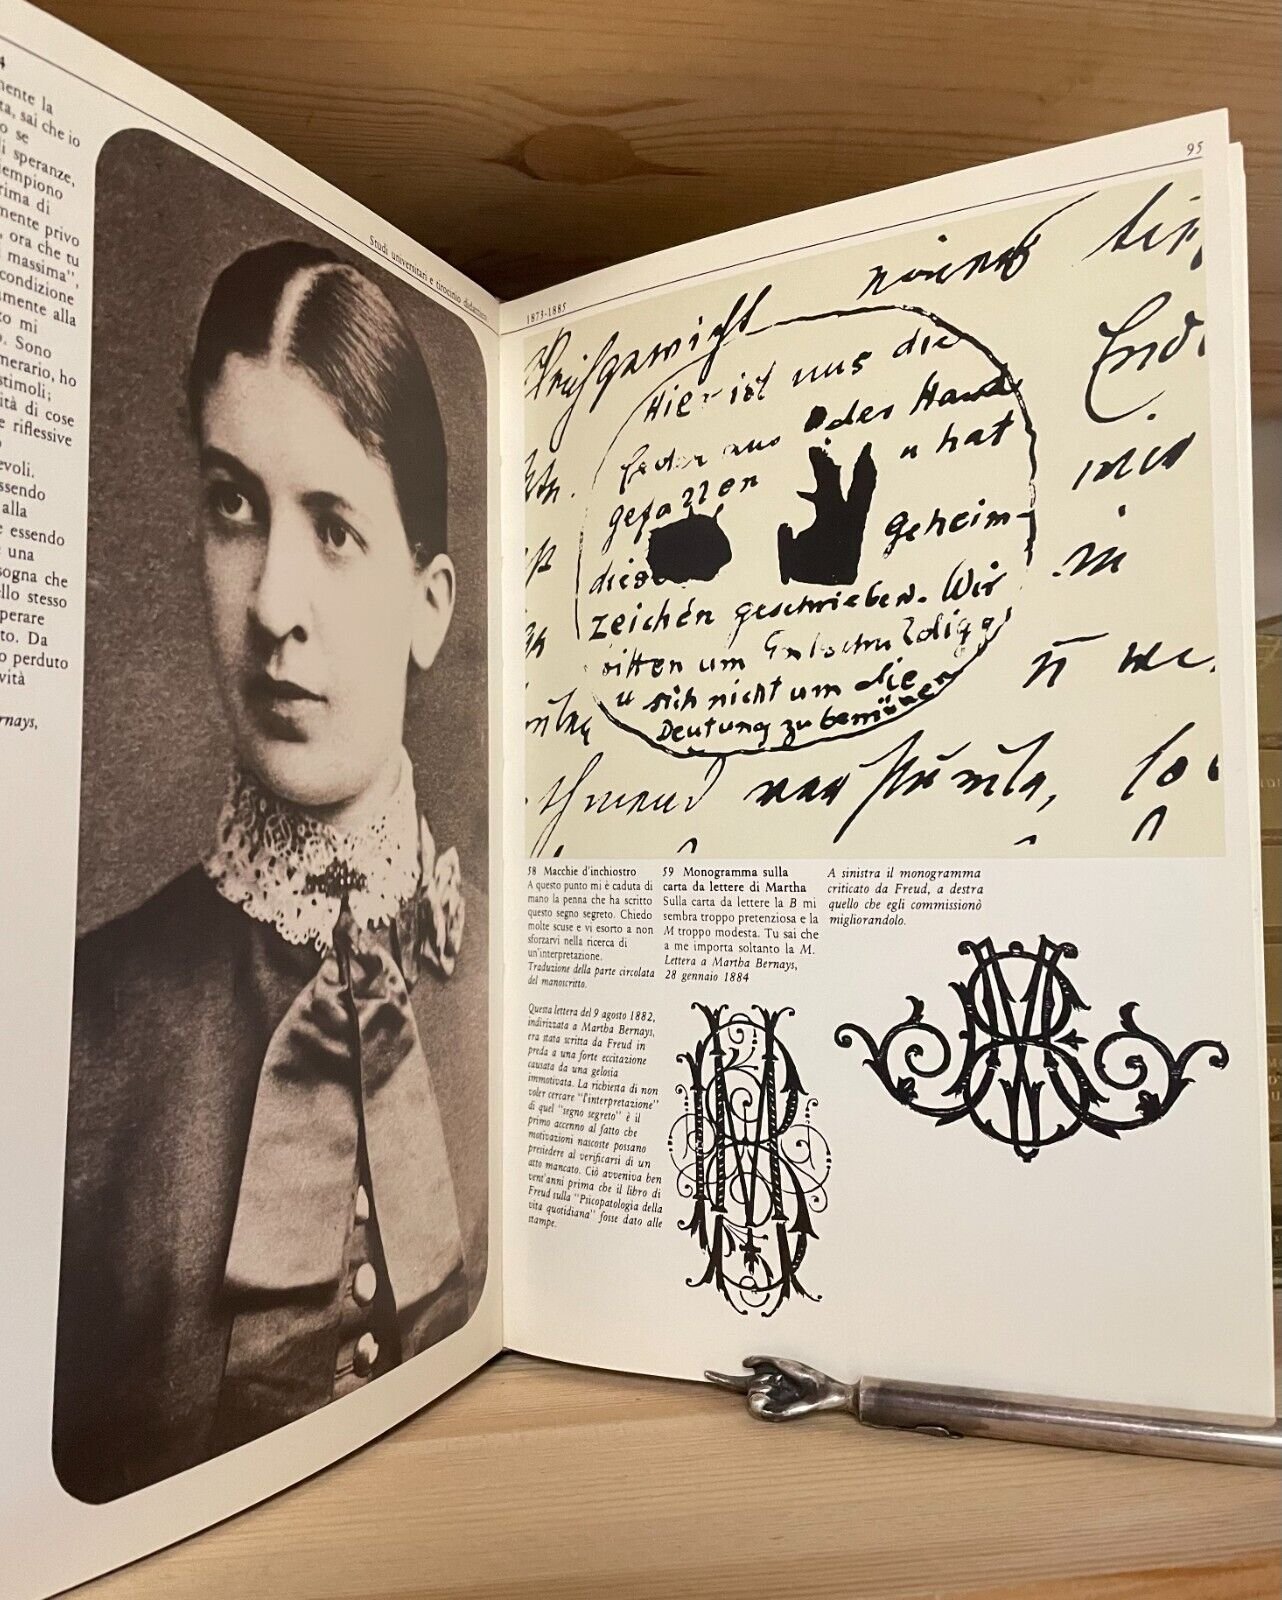 4
mente la
ta, sai che io
o se
li speranze,
iempiono
rima di
mente privo
, ora che tu
massima",
condizione
umente alla
to mi
o. Sono
merario, ho
stimoli;
ità di cose
e riflessive
o
evoli.
essendo
alla
e essendo
una
sogna che
ello stesso
perare
to. Da
o perduto
vità
rnays,
Studi universitari e tirocinio
95
1873-1885
Hier ist uns die
Feder aus der Hand
gefallen u hat
diese geheim-
zeichen geschrieben. Wir
bitten um
u sich nicht um die
Deutung zu bemühen
58 Macchie d'inchiostro
A questo punto mi è caduta di
mano la penna che ha scritto
questo segno segreto. Chiedo
molte scuse e vi esorto a non
sforzarvi nella ricerca di
un'interpretazione.
Traduzione della parte circolata
del manoscritto.
Questa lettera del 9 agosto 1882,
indirizzata a Martha Bernays,
era stata scritta da Freud in
preda a una forte eccitazione
causata da una gelosia
immotivata. La richiesta di non
voler cercare "l'interpretazione"
di quel "segno segreto" è il
primo accenno al fatto che
motivazioni nascoste possano
presiedere al verificarsi di un
atto mancato. Ciò avveniva ben
vent'anni prima che il libro di
Freud sulla "Psicopatologia della
vita quotidiana" fosse dato alle
stampe.
59 Monogramma sulla
carta da lettere di Martha
Sulla carta da lettere la B mi
sembra troppo pretenziosa e la
M troppo modesta. Tu sai che
a me importa soltanto la M.
Lettera a Martha Bernays,
28 gennaio 1884
A sinistra il monogramma
criticato da Freud, a destra
quello che egli commissionò
migliorandolo.